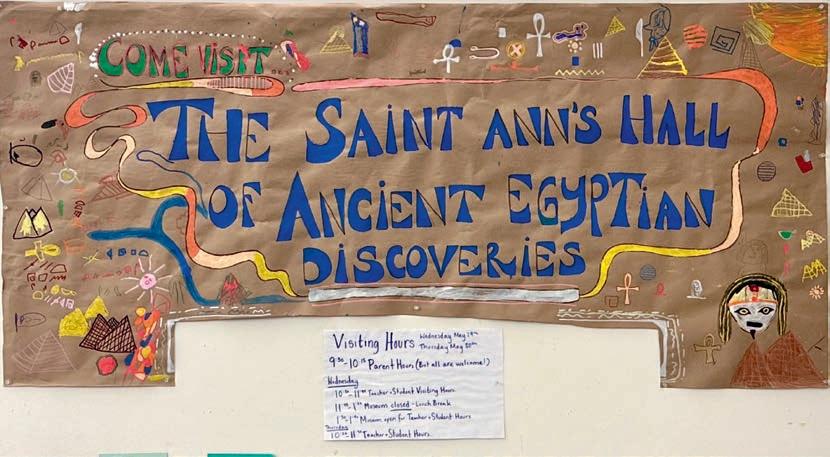 COME VISIT
THE SAINT ANN'S HALL
OF ANCIENT EGYPTIAN
DISCOVERIES
Visiting Hours
Wednesday May 29th
Thursday May 30th
9³⁰-10¹⁵ Parent Hours (But all are welcome!)
Wednesday
Teacher + Student Visiting Hours
Museum closed - Lunch Break
Museum open for Teacher + Student Hours
Thursday
Teacher + Student Hours